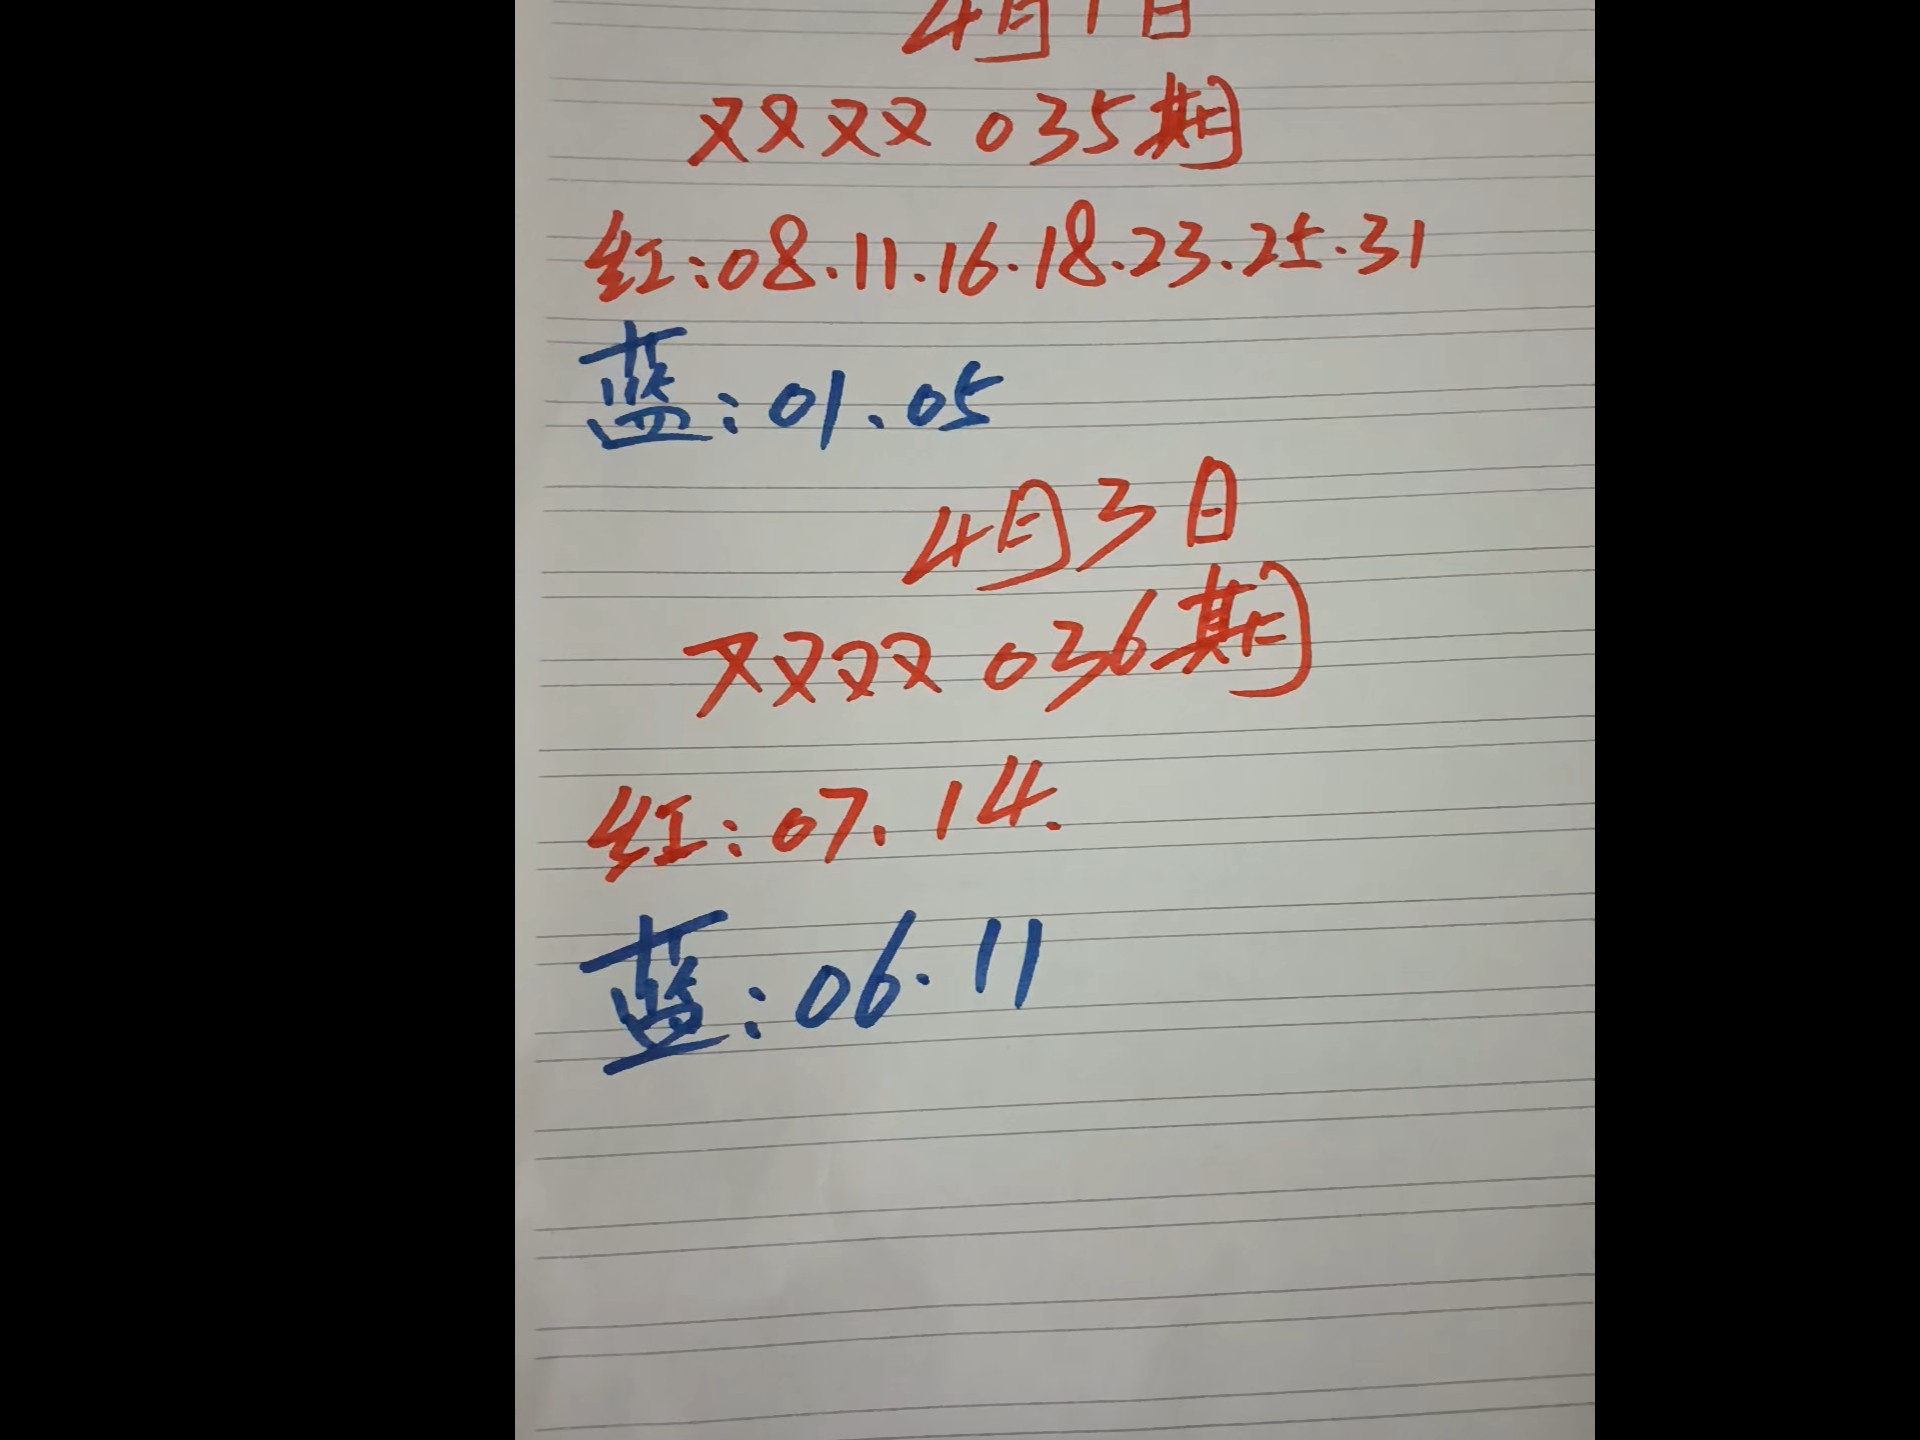 4月1日
双双 035期
红:08.11.16.18.23.25.31
蓝:01.05
4月3日
双双 036期
红:07.14.
蓝:06.11